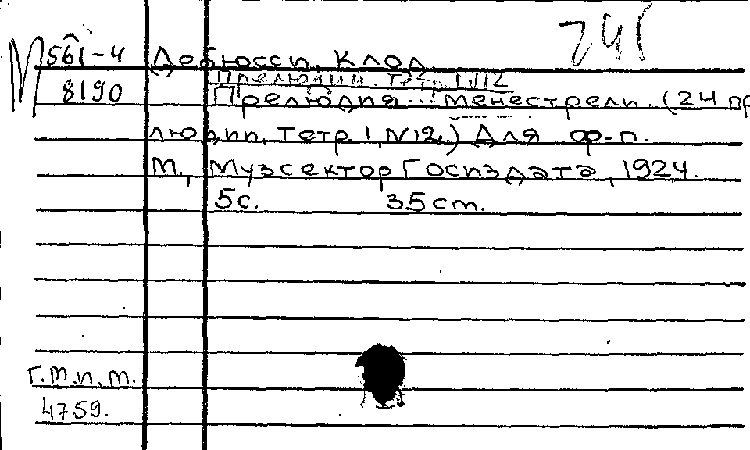 М 561-4 Дебюсси, Клод 245
8190 Прелюдии. тет. 1, №12
Прелюдия... менестрели. (24 пр
людии, Тетр 1, №12.) Для ф-п.
М., Музсектор Госиздата, 1924.
5с. 35cm.
Г.М.п.т.
4759.